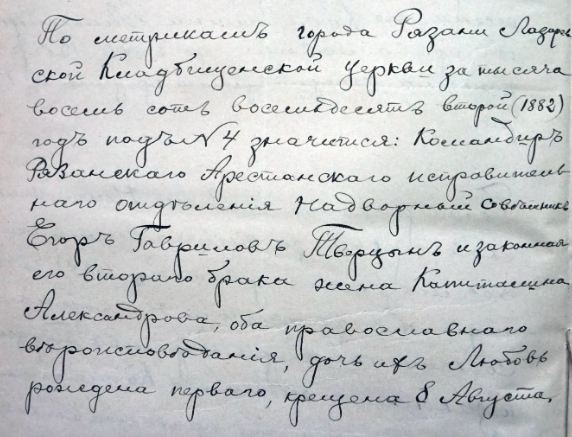 По метрикамъ города Рязани Лазарев
ской Кладбищенской церкви за тысяча
восемь сотъ восемьдесятъ второй (1882)
годъ подъ № 4 значится: Командиръ
Рязанскаго Арестанскаго исправитель
наго отдѣленія Надворный Совѣтникъ
Егоръ Гавриловъ Творцынъ и законная
его втораго брака жена Капиталина
Александрова, оба православнаго
вѣроисповѣданія, дочь ихъ Любовь
рождена перваго, крещена 8 Августа,